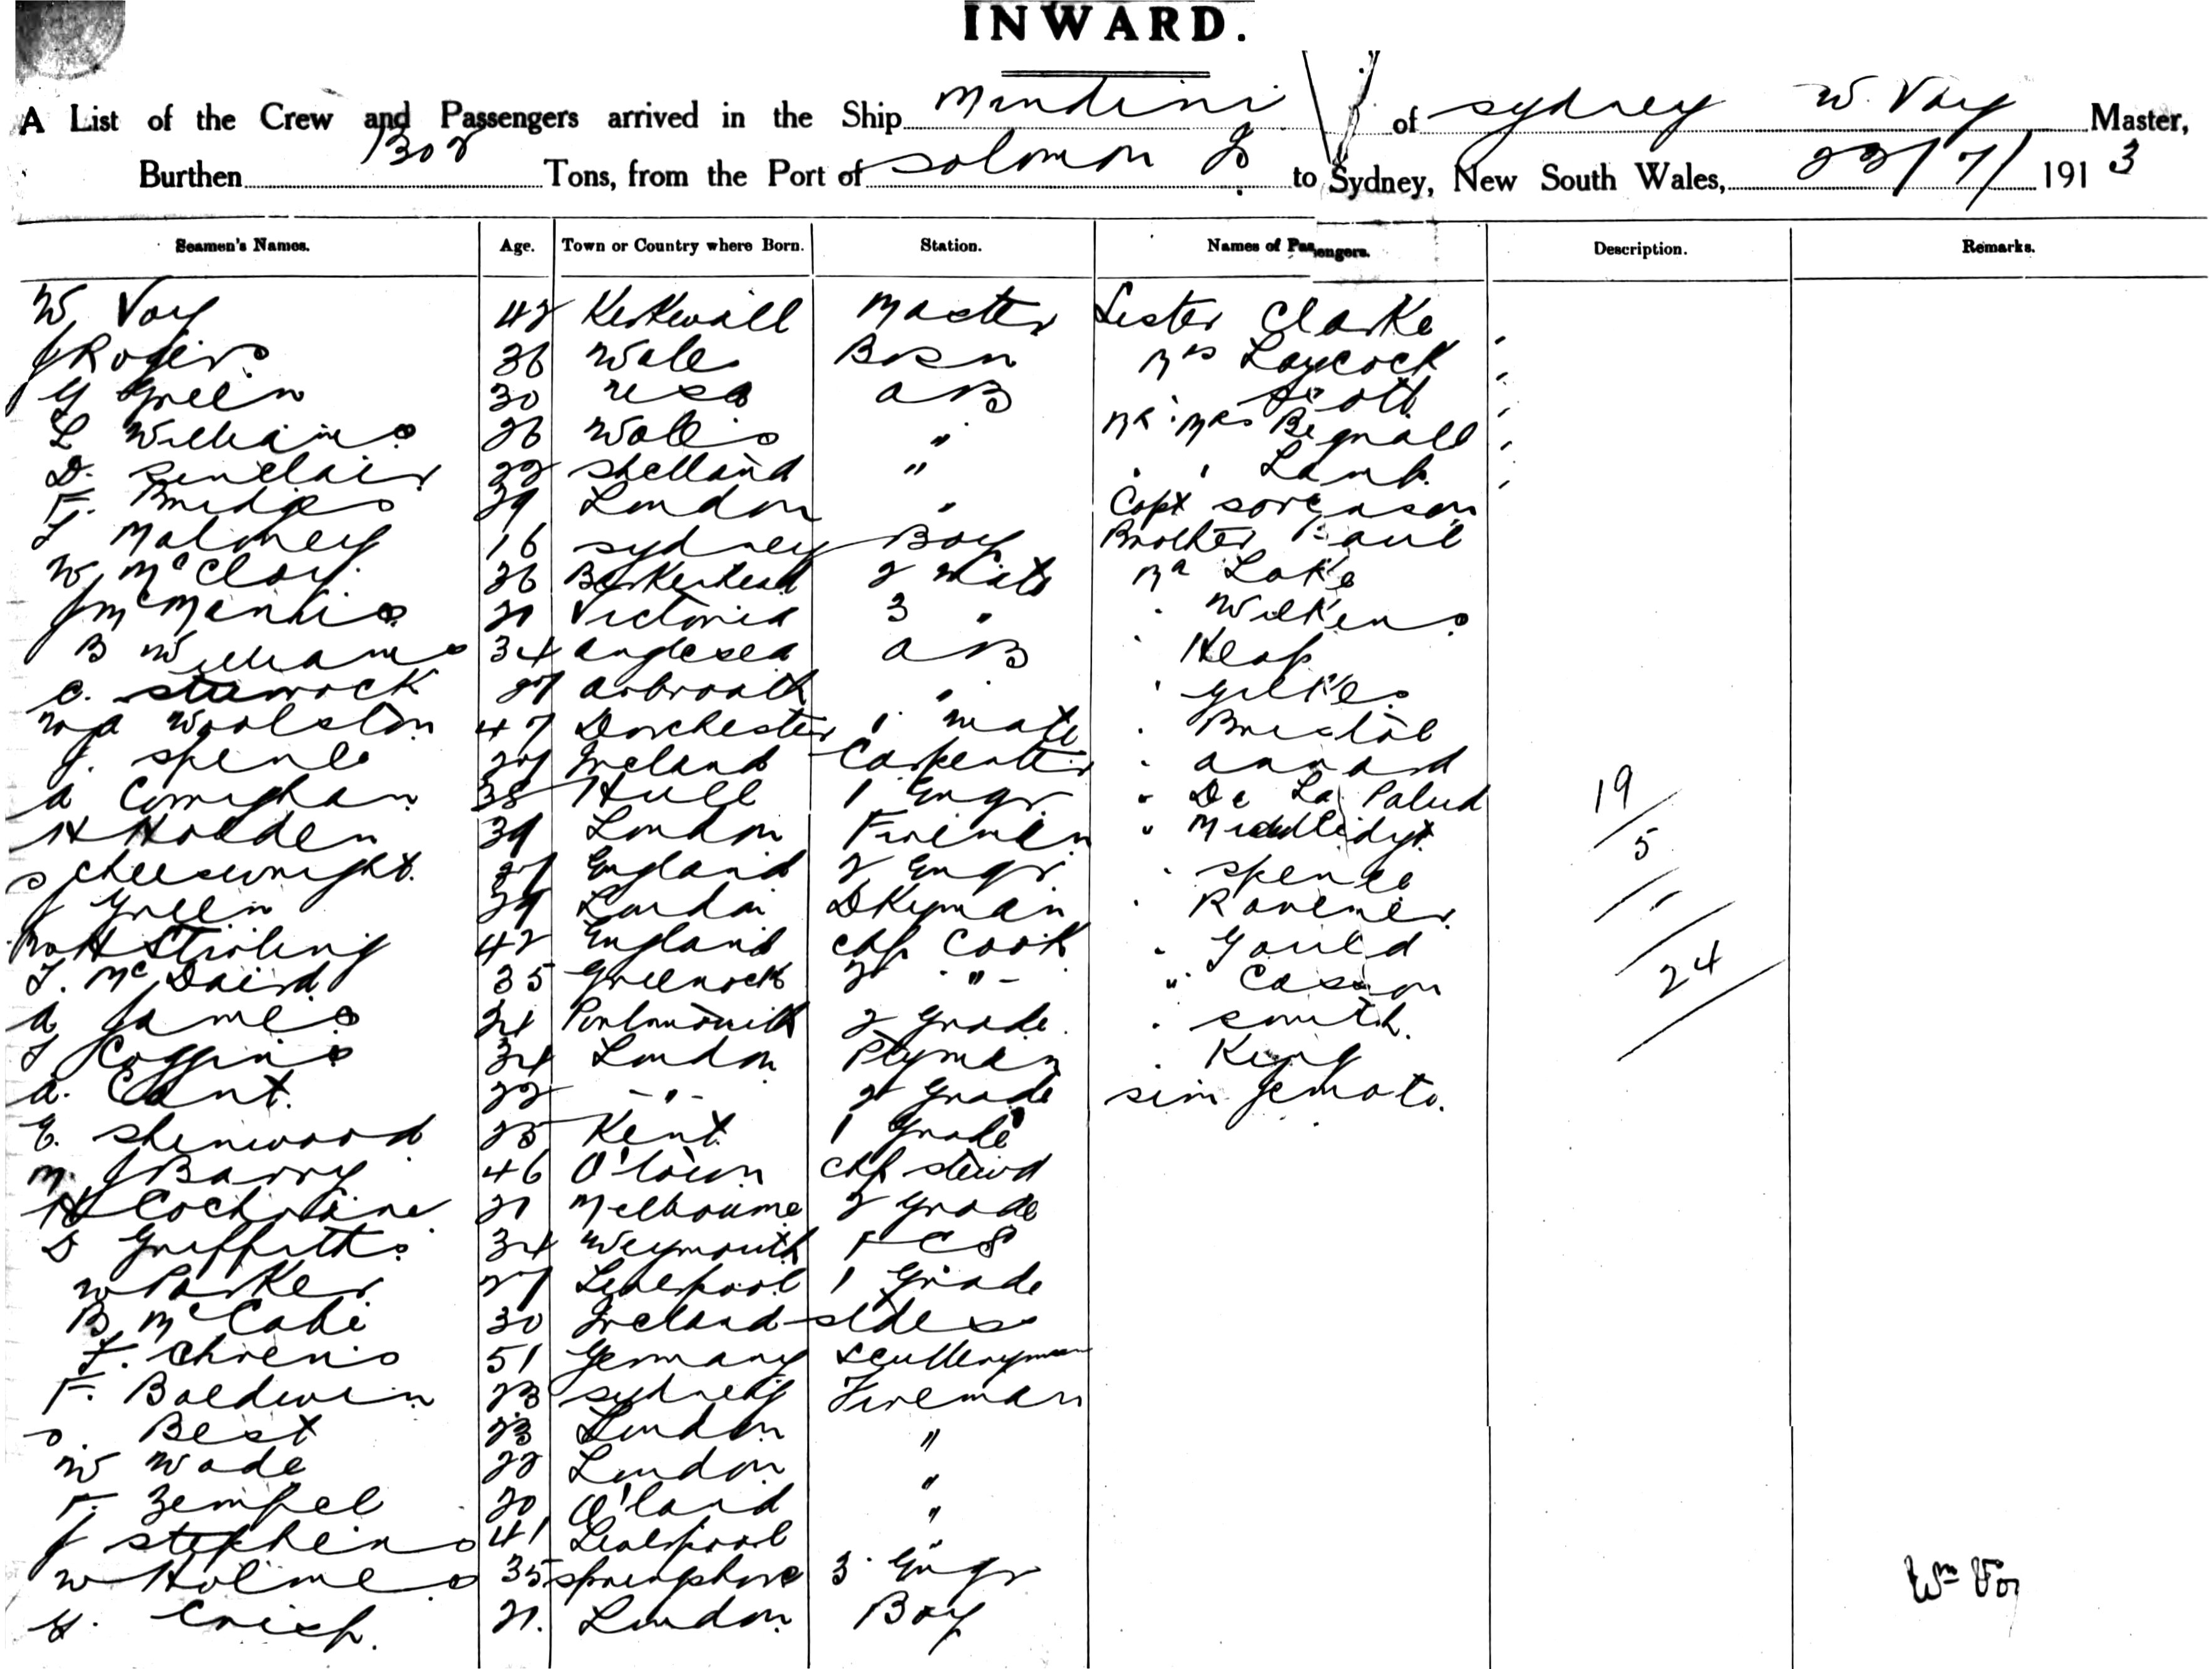 INWARD.
A List of the Crew and Passengers arrived in the Ship Mindini of Sydney W. Voy Master,
Burthen 1302 Tons, from the Port of Solomon Is to Sydney, New South Wales, 23/7/ 1913
Seamen's Names. Age. Town or Country where Born. Station. Names of Passengers. Description. Remarks.
W Voy 42 Kirkwall Master Sister Clarke
J Rogers 36 Wales Bosn Mrs Laycock
G Green 30 USA AB Scott
L Williams 26 Wales " Mr & Mrs Bignall
D. Sinclair 22 Shetland " " " Lamb
F. Bridges 39 London " Capt Sorenson
T Maloney 16 Sydney Boy Brother Paul
W McCloy 26 Birkenhead 2 Mate Mr Lake
J McMenhis 21 Victoria 3 " " Wilkens
B Williams 34 Anglesea AB " Heap
C. Sturrock 27 Arbroath " " Gilkes
W A Woolston 47 Dorchester 1 Mate " Bristol
J. Spence 29 Ireland Carpenter " Annard
A Corrighan 38 Hull 1 Engr " De La Palud 19
H Holden 39 London Firemen " Middlidyt 5
S Cheeswright. 27 England 2 Engr " Spence
J Green 39 London Dkyman " Ravener
W H Stirling 42 England Chf Cook " Gould 24
T. McDaird 35 Greenock 2 - " - " Casson
A James 24 Portsmouth 2 Grade " Smith.
T Coggins 34 London Ptyman " King
A. Cant. 22 - " - 2 Grade Sim Jemoto.
E. Sherwood 25 Kent 1 Grade
M J Barry 46 Q'town Chf Stewd
H Cochrane 21 Melbourne 2 Grade
S Griffiths 34 Weymouth F C S
W Parker 27 Liverpool 1 Grade
B McCabe 30 Ireland Stdess
F. Chrens 51 Germany Sculleryman
F. Baldwin 23 Sydney Fireman
S. Best 23 London "
W Wade 22 London "
F. Zempel 30 Q'land "
J Stephens 41 Liverpool
W Holmes 35 Springshore 3 Engr
H. Crisp. 21. London Boy
Wm Voy